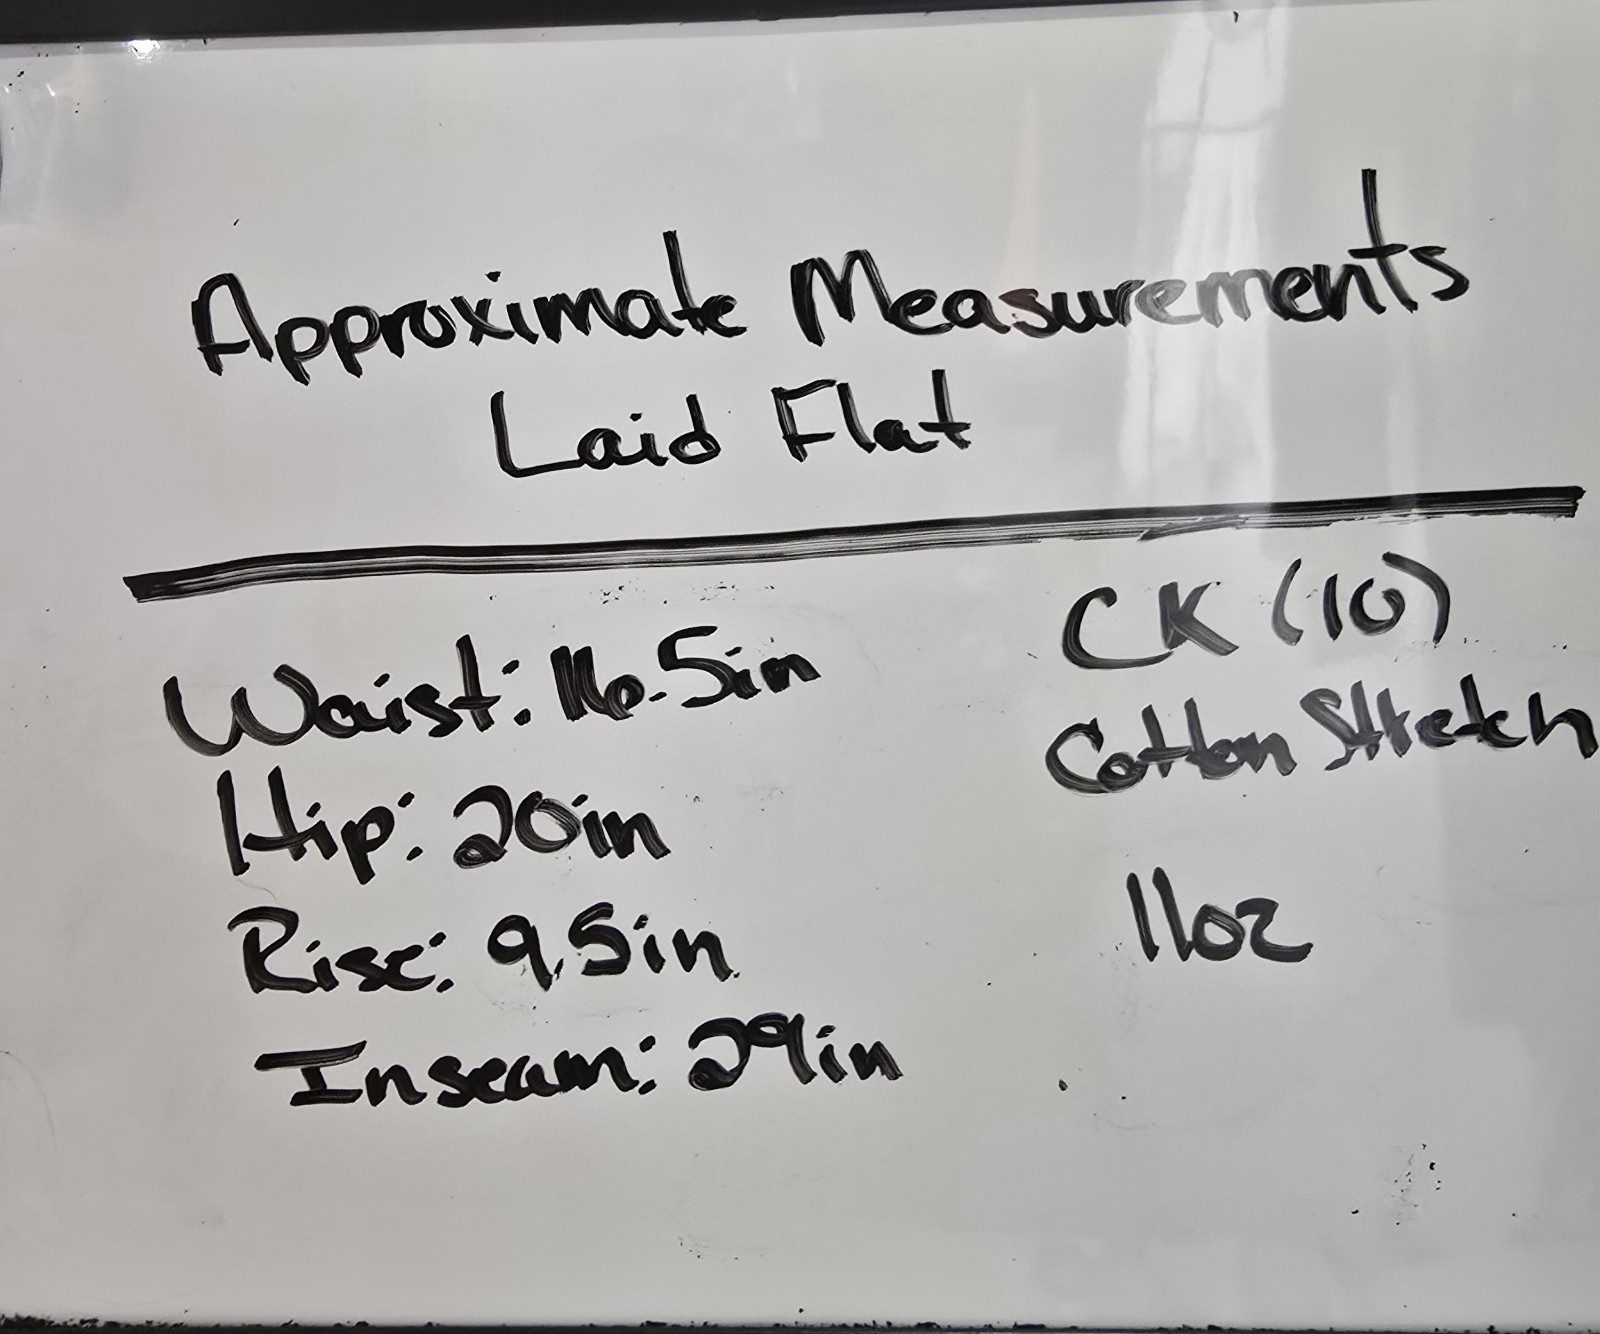 Approximate Measurements
Laid Flat
Waist: 16.5in
Hip: 20in
Rise: 9.5in
Inseam: 29in
CK (10)
Cotton Stretch
11oz